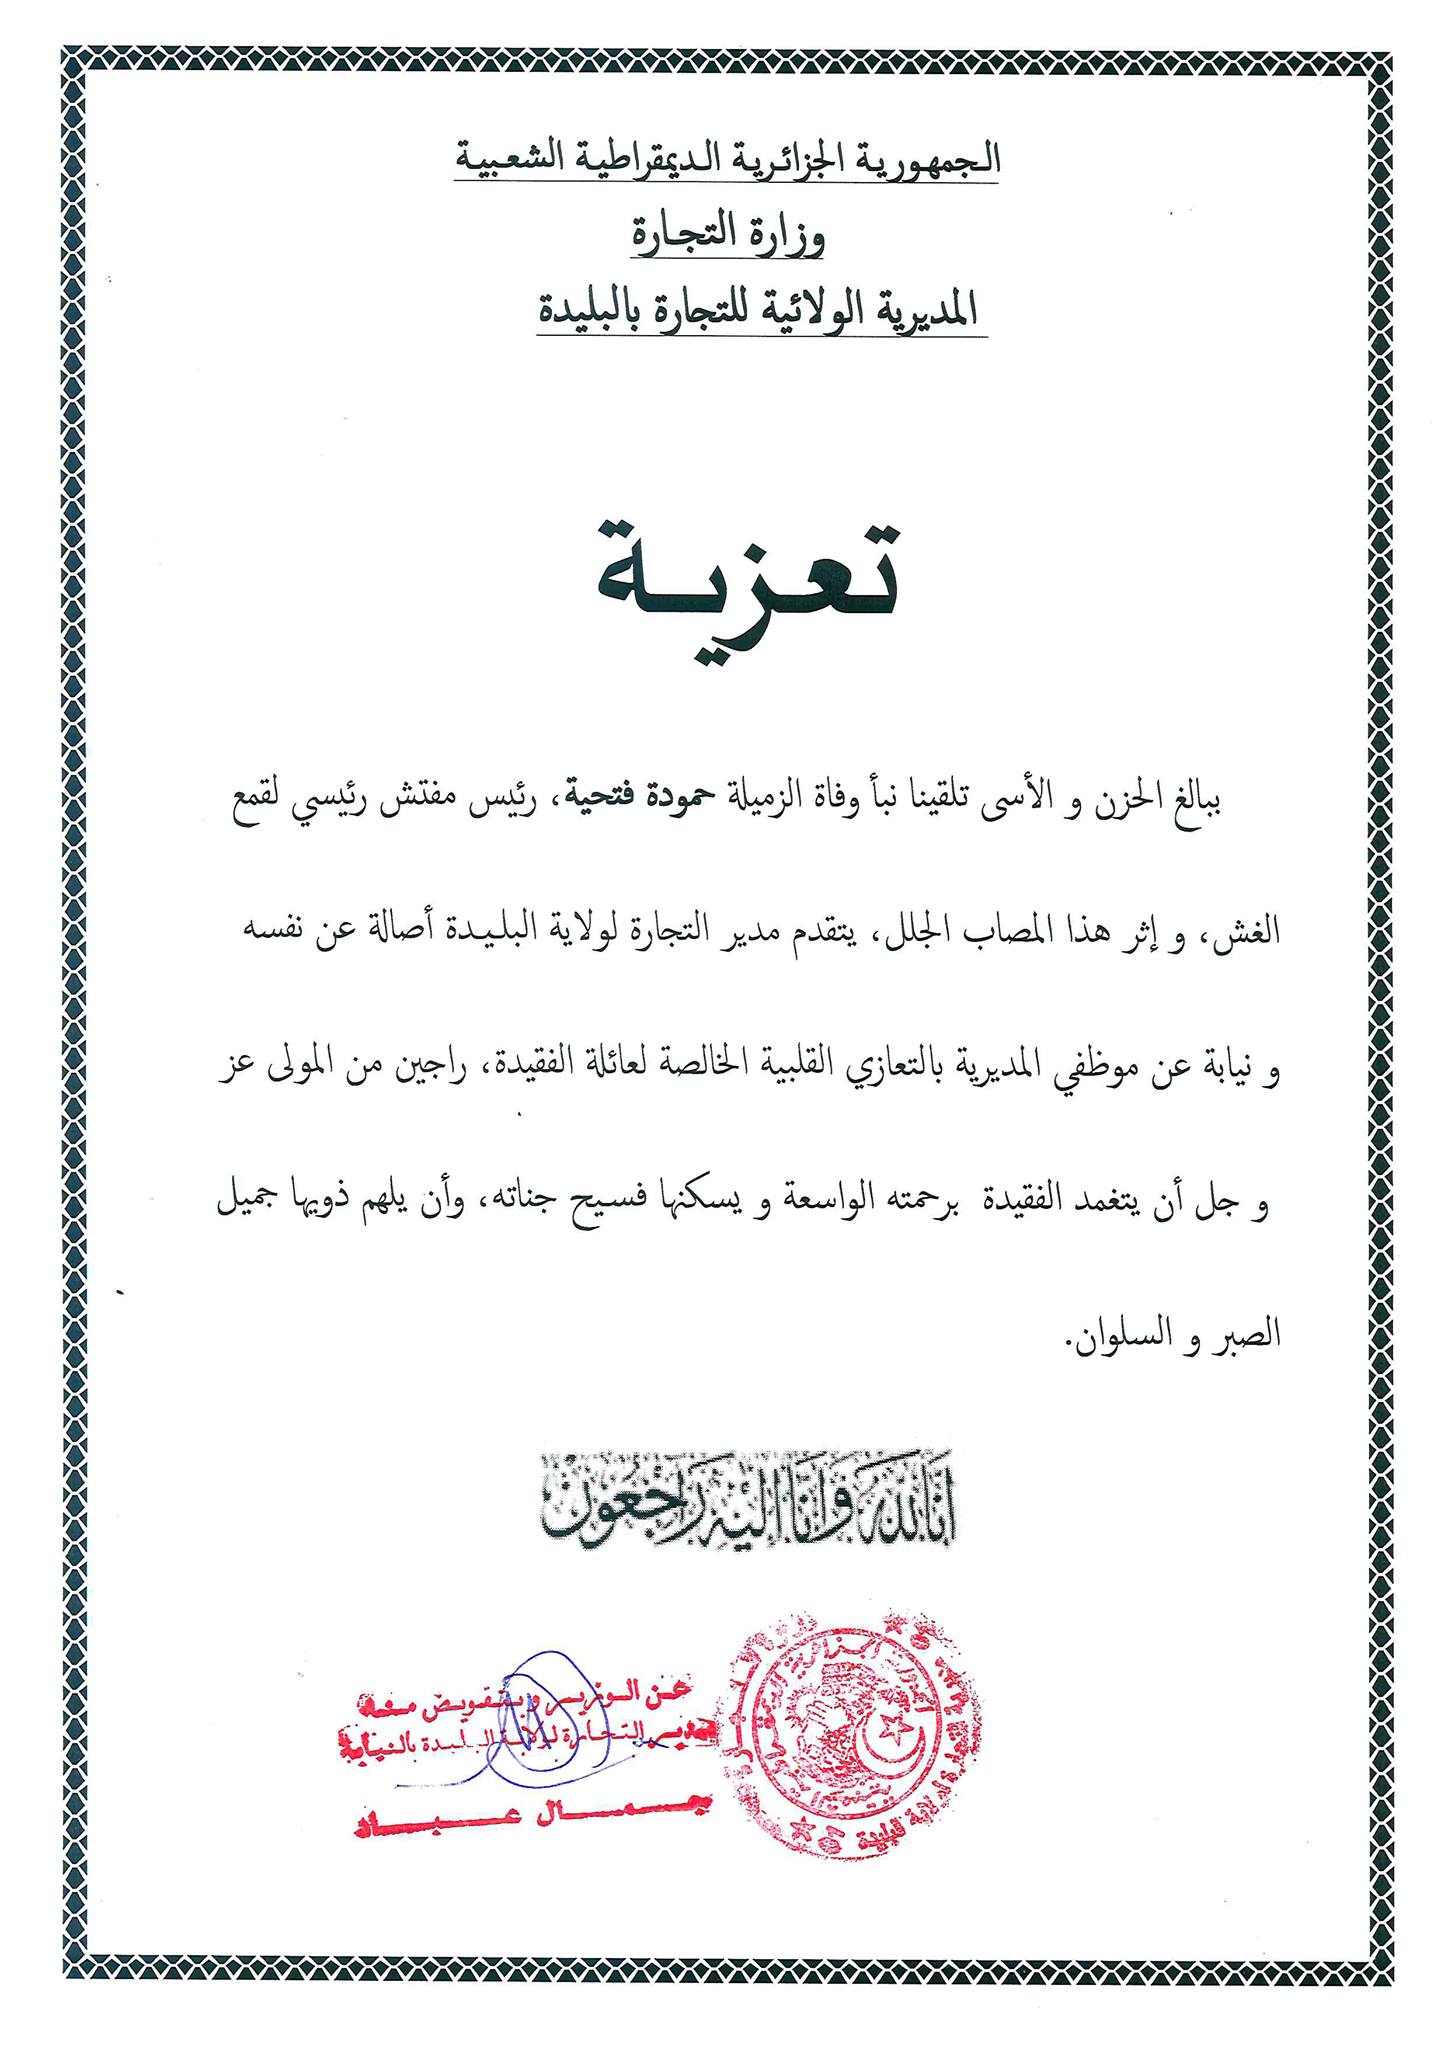 الجمهورية الجزائرية الديمقراطية الشعبية
وزارة التجارة
المديرية الولائية للتجارة بالبليدة
تعزية
ببالغ الحزن و الأسى تلقينا نبأ وفاة الزميلة حمودة فتحية، رئيس مفتش رئيسي لقمع
الغش، و إثر هذا المصاب الجلل، يتقدم مدير التجارة لولاية البليدة أصالة عن نفسه
و نيابة عن موظفي المديرية بالتعازي القلبية الخالصة لعائلة الفقيدة، راجين من المولى عز
و جل أن يتغمد الفقيدة برحمته الواسعة و يسكنها فسيح جناته، وأن يلهم ذويها جميل
الصبر و السلوان.
انا لله وانا اليه راجعون
عن الوزير وبتفويض منه
مدير التجارة لولاية البليدة بالنيابة
جمال عباد